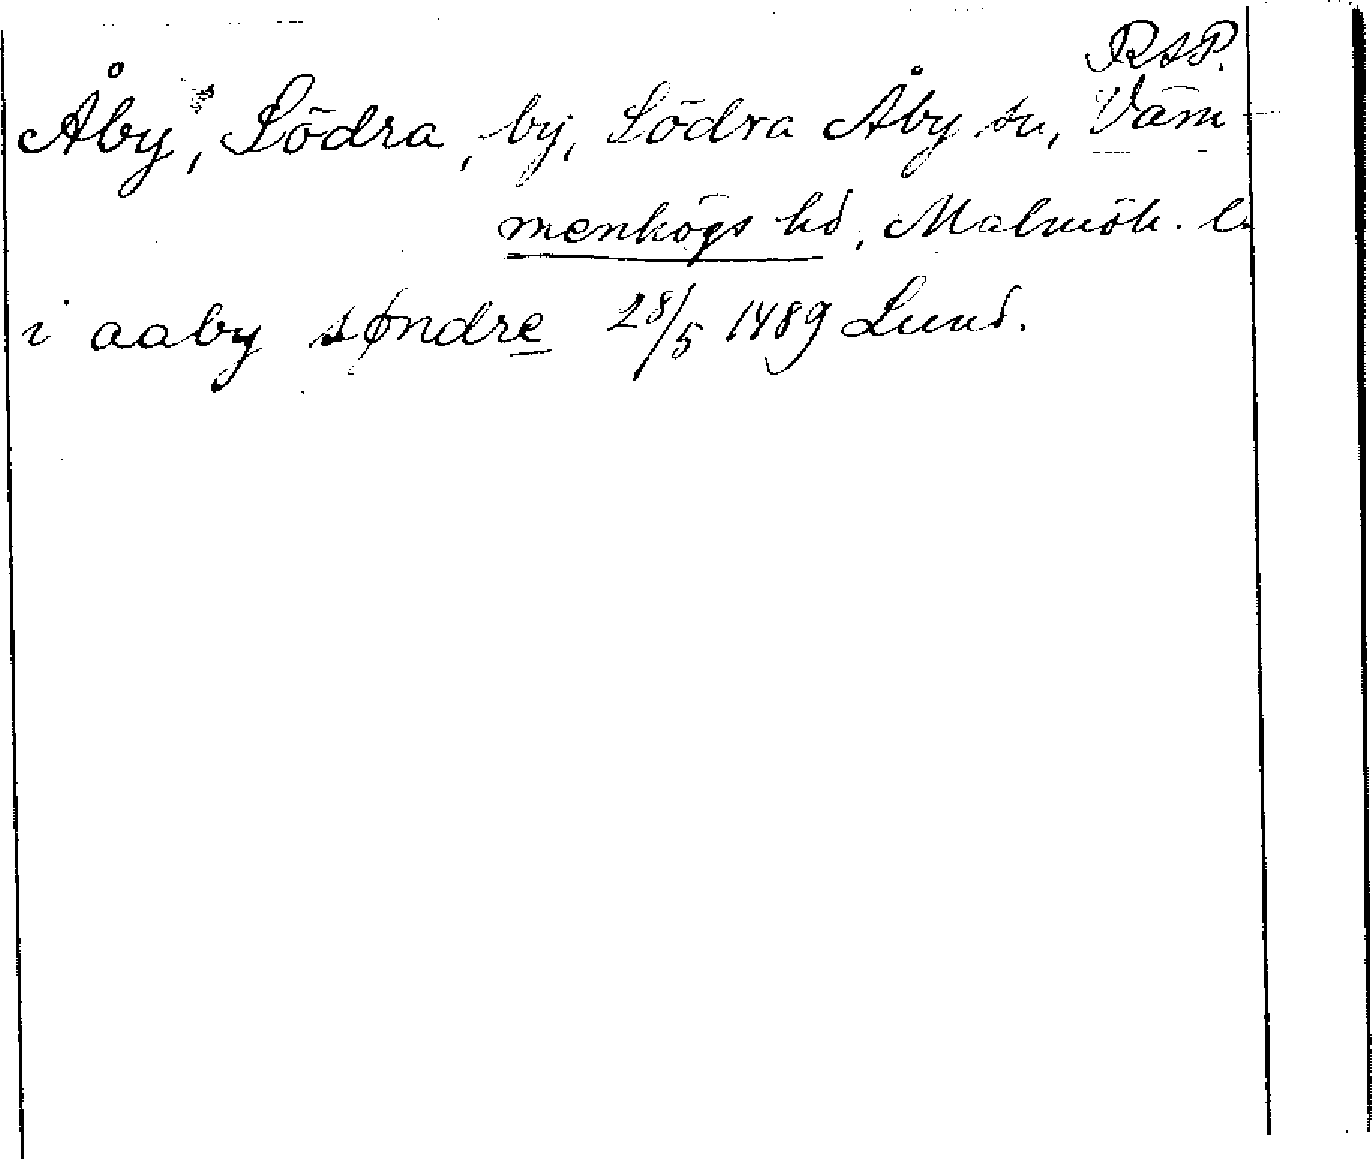 RAP.
Åby, Södra, by, Södra Åby sn, Väm
menhögs hd, Malmöh. l.
i aaby søndre 28/5 1489 Lund.